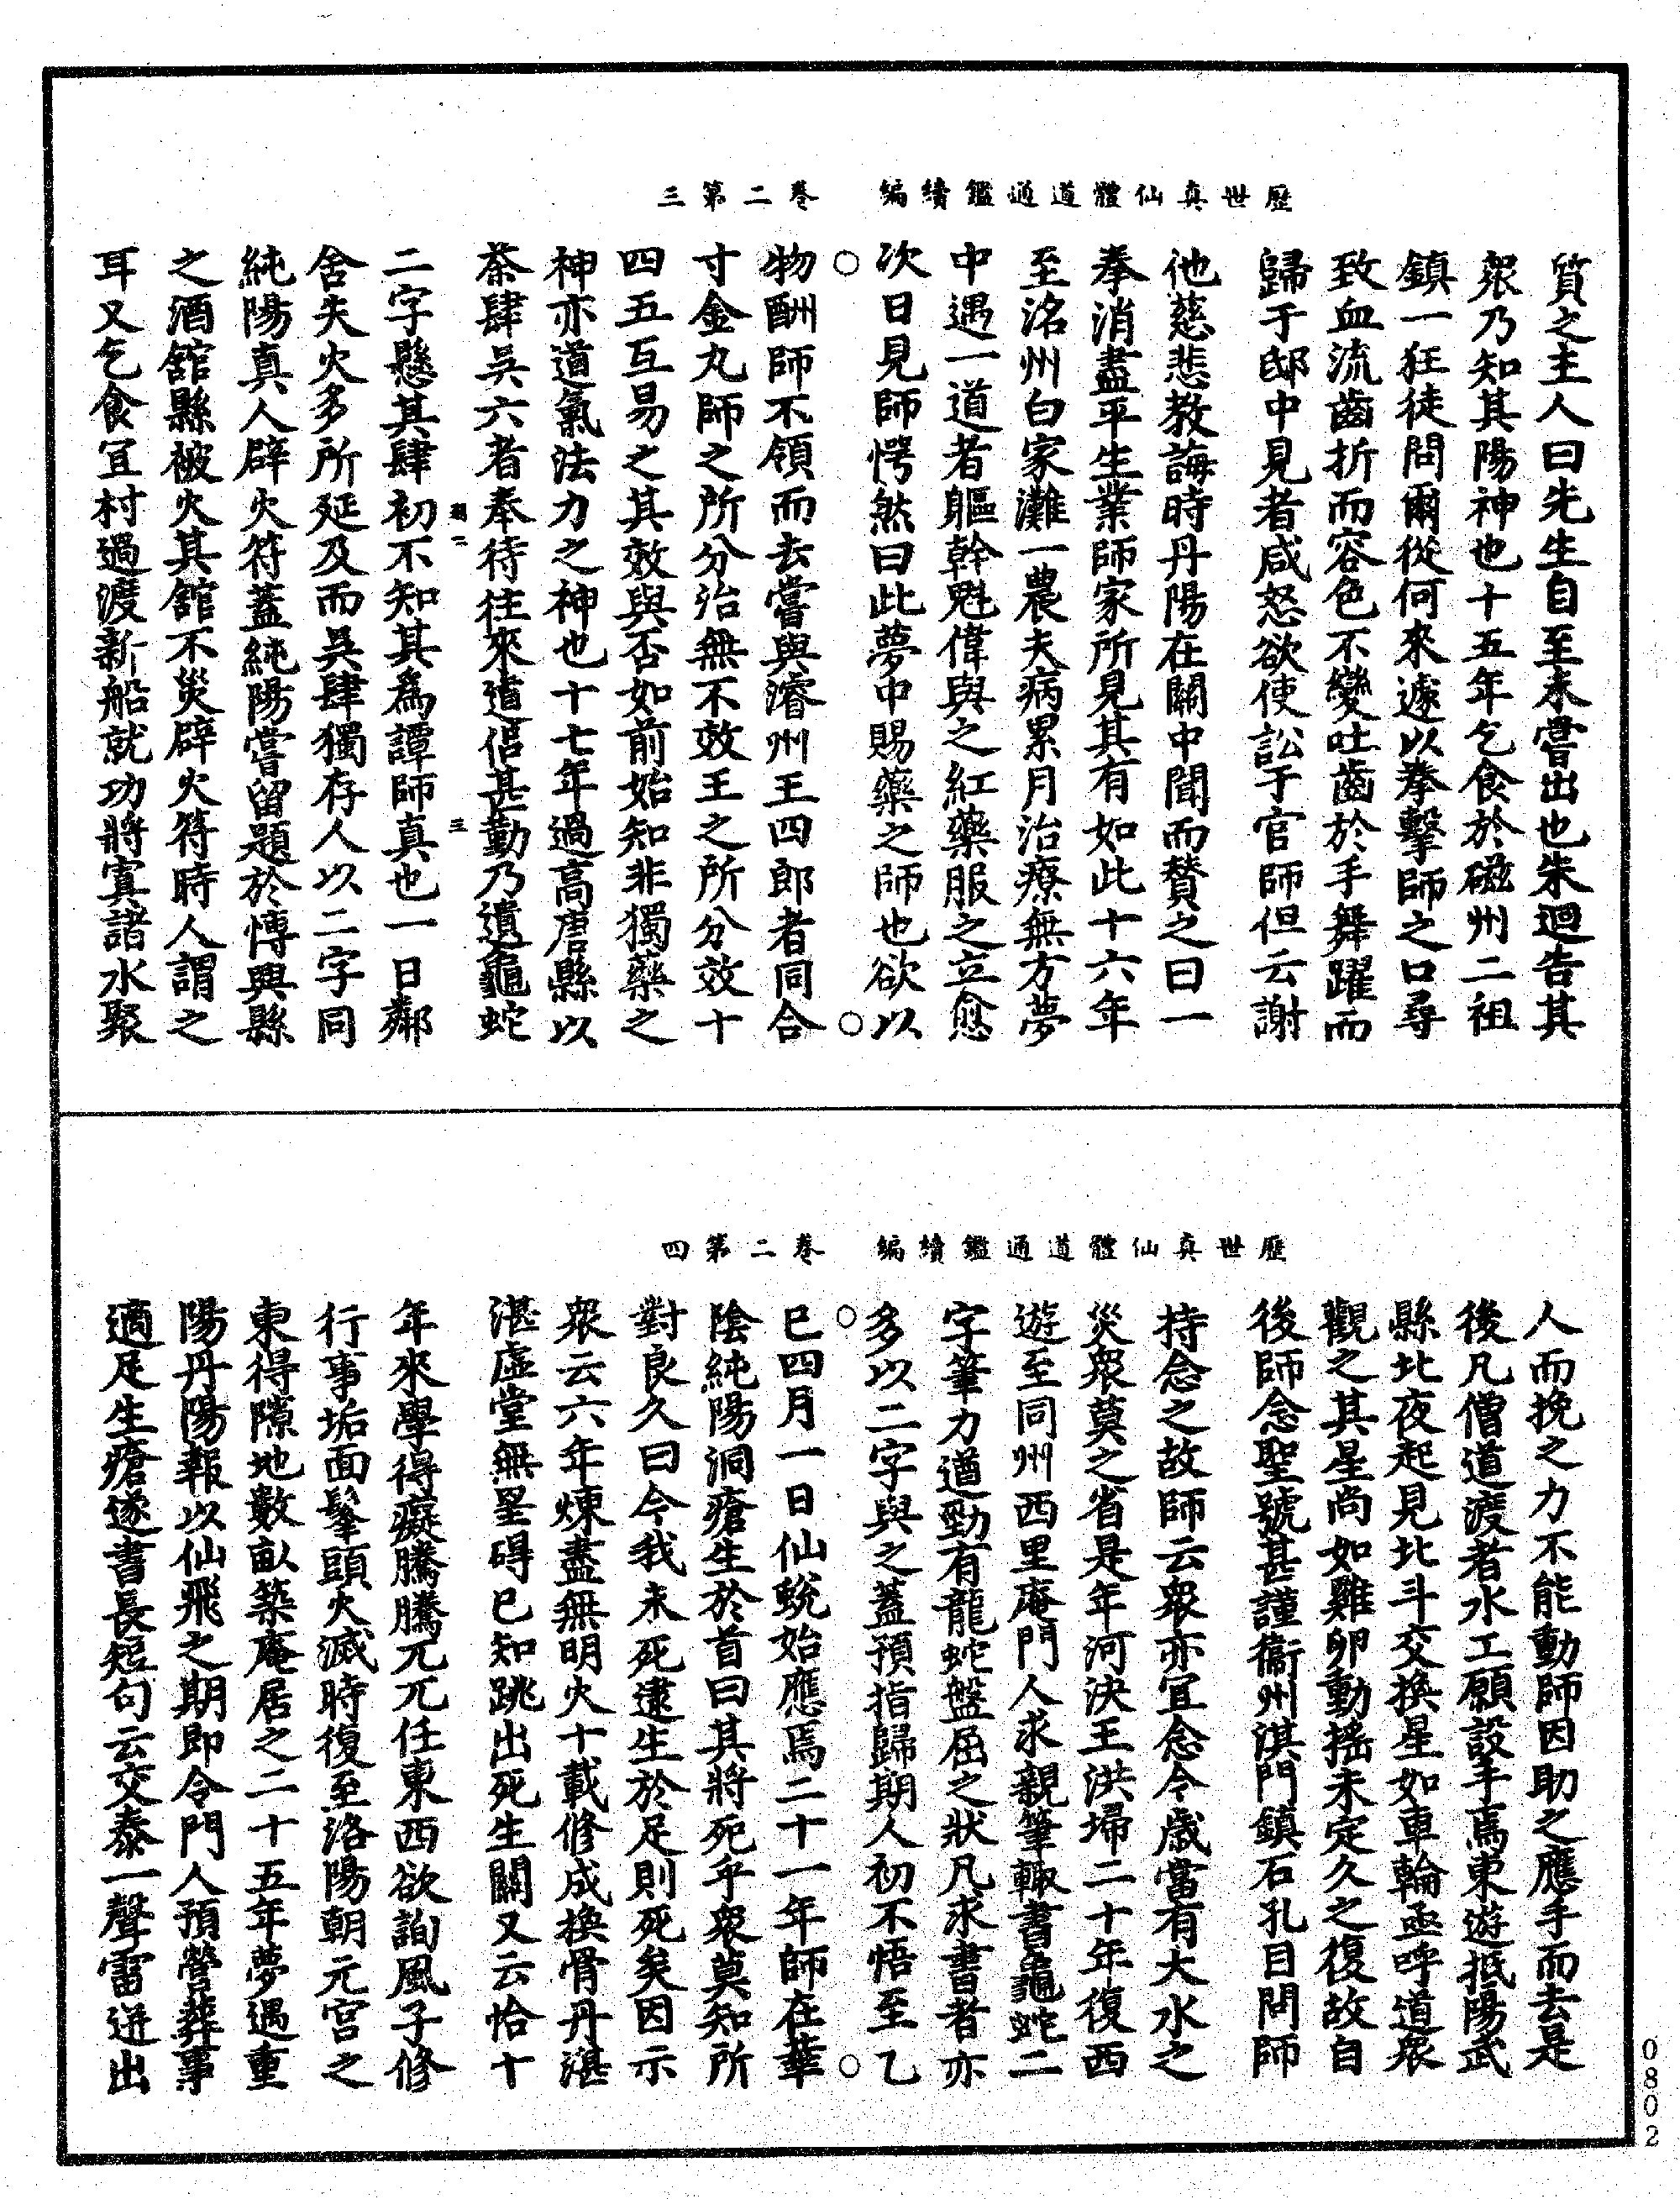 歷世真仙體道通鑑續編　卷二第三
質之主人曰先生自至未嘗出也朱迴告其
衆乃知其陽神也十五年乞食於磁州二祖
鎮一狂徒問爾從何來遽以拳擊師之口尋
致血流齒折而容色不變吐齒於手舞躍而
歸于邸中見者咸怒欲使訟于官師但云謝
他慈悲教誨時丹陽在關中聞而贊之曰一
拳消盡平生業師家所見其有如此十六年
至洺州白家灘一農夫病累月治療無方夢
中遇一道者軀幹魁偉與之紅藥服之立愈
次日見師愕然曰此夢中賜藥之師也欲以
物酬師不領而去嘗與濬州王四郎者同合
寸金丸師之所分治無不效王之所分效十
四五互易之其效與否如前始知非獨藥之
神亦道氣法力之神也十七年過高唐縣以
茶肆吳六者奉待往來道侣甚勤乃遺龜蛇
二字懸其肆初不知其為譚師真也一日鄰
舍失火多所延及而吳肆獨存人以二字同
純陽真人辟火符蓋純陽嘗留題於愽興縣
之酒舘縣被火其舘不災辟火符時人謂之
耳又乞食冝村過渡新船就功將寘諸水聚
歷世真仙體道通鑑續編　卷二第四
人而挽之力不能動師因助之應手而去是
後凡僧道渡者水工願設手焉東遊抵陽武
縣北夜起見北斗交換星如車輪亟呼道衆
觀之其星尚如雞卵動搖未定久之復故自
後師念聖號甚謹衞州淇門鎮石孔目問師
持念之故師云衆亦宜念今歲當有大水之
災衆莫之省是年河決王洪埽二十年復西
遊至同州西里庵門人求親筆輙書龜蛇二
字筆力遒勁有龍蛇盤屈之狀凡求書者亦
多以二字與之蓋預指歸期人初不悟至乙
巳四月一日仙蛻始應焉二十一年師在華
陰純陽洞瘡生於首曰其將死乎衆莫知所
對良久曰今我未死逮生於足則死矣因示
衆云六年煉盡無明火十載修成換骨丹湛
湛虛堂無罣碍已知跳出死生關又云恰十
年來學得癡騰騰兀兀任東西欲詢風子修
行事垢面髼頭火滅時復至洛陽朝元宮之
東得隙地數畝築庵居之二十五年夢遇重
陽丹陽報以仙飛之期即令門人預營葬事
適足生瘡遂書長短句云交泰一聲雷迸出
0802